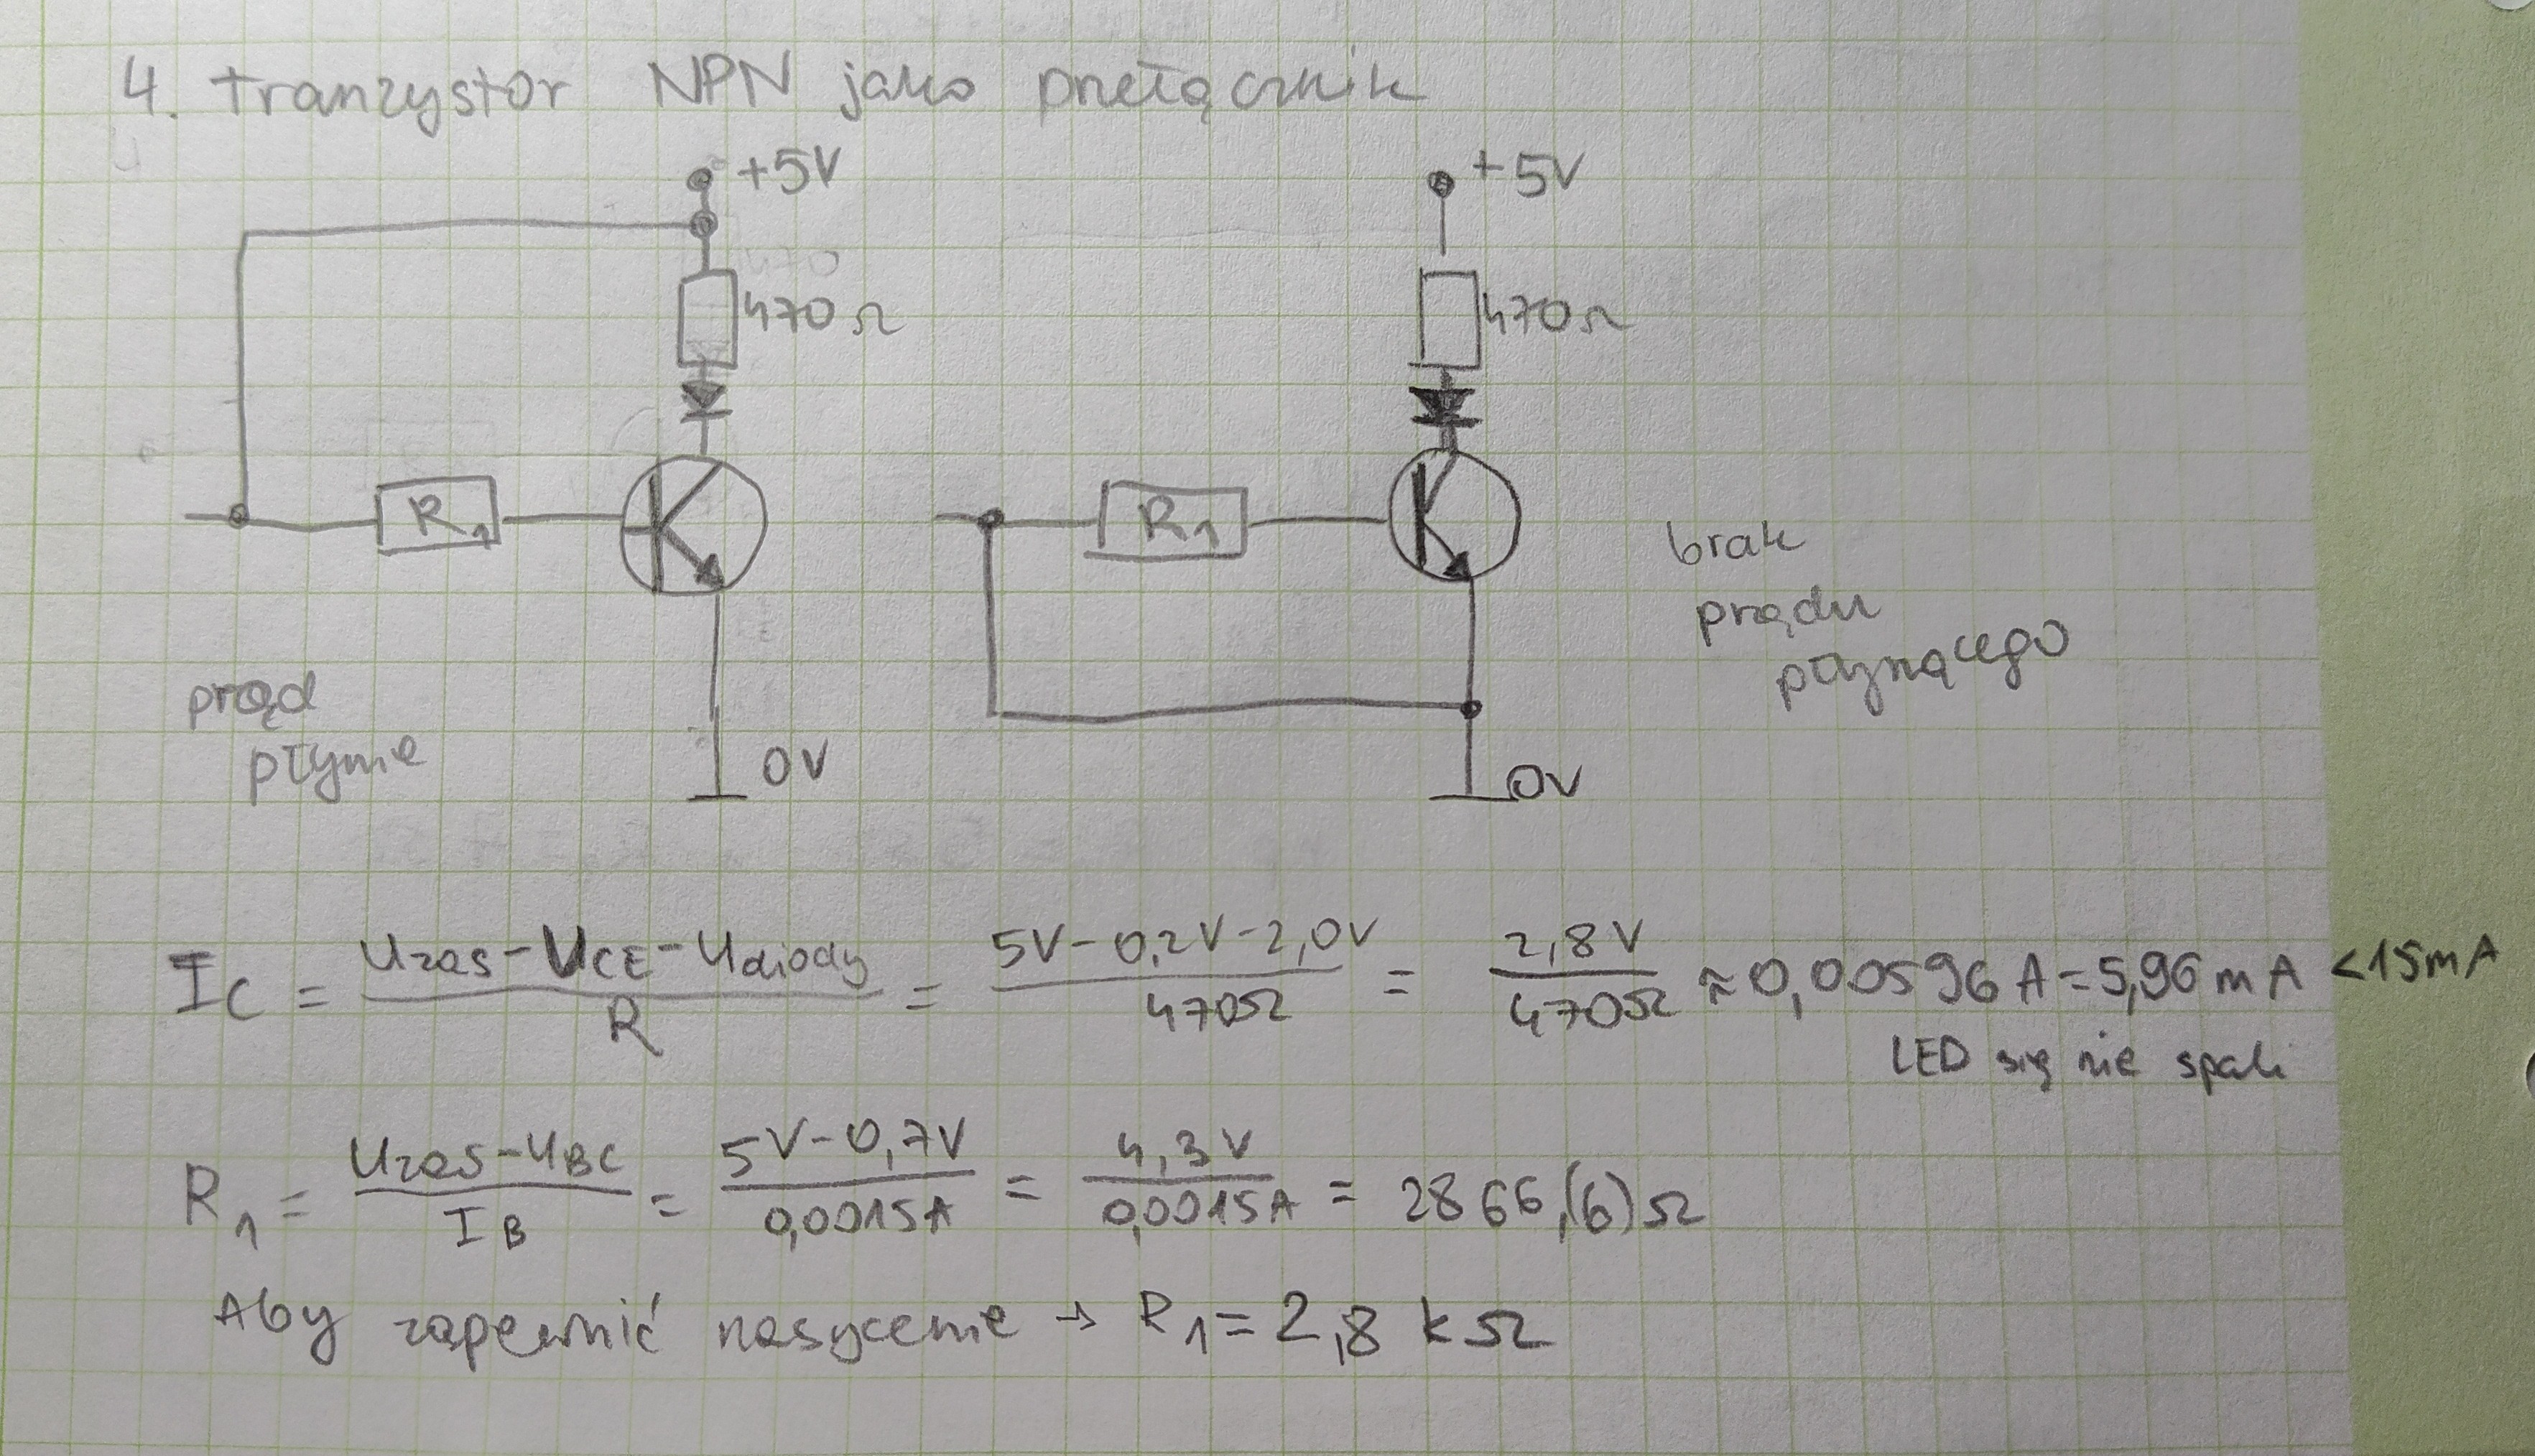 4. tranzystor NPN jako przełącznik
+5V
+5V
470Ω
470Ω
R1
R1
brak
prądu
płynącego
prąd
płynie
0V
0V
IC = (Uzas - UCE - Udiody)/R = (5V - 0,2V - 2,0V)/470Ω = 2,8V/470Ω ≈ 0,00596 A = 5,96 mA < 15mA
LED się nie spali
R1 = (Uzas - UBC)/IB = (5V - 0,7V)/0,0015A = 4,3V/0,0015A = 2866,(6)Ω
Aby zapewnić nasycenie → R1 = 2,8 kΩ